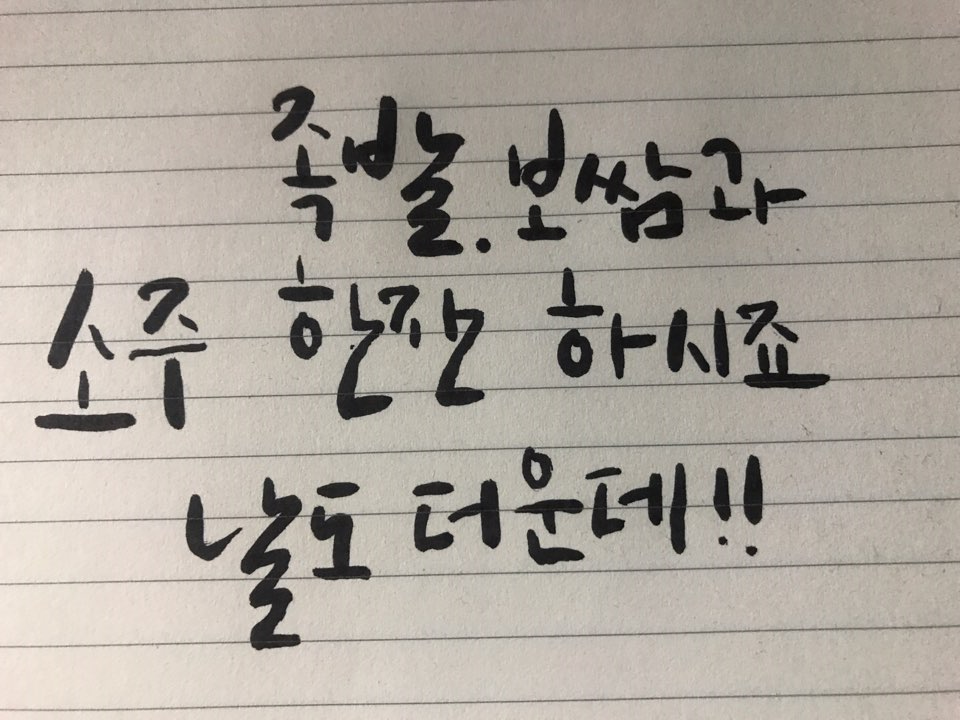 족발.보쌈과
소주 한잔 하시죠
날도 더운데!!